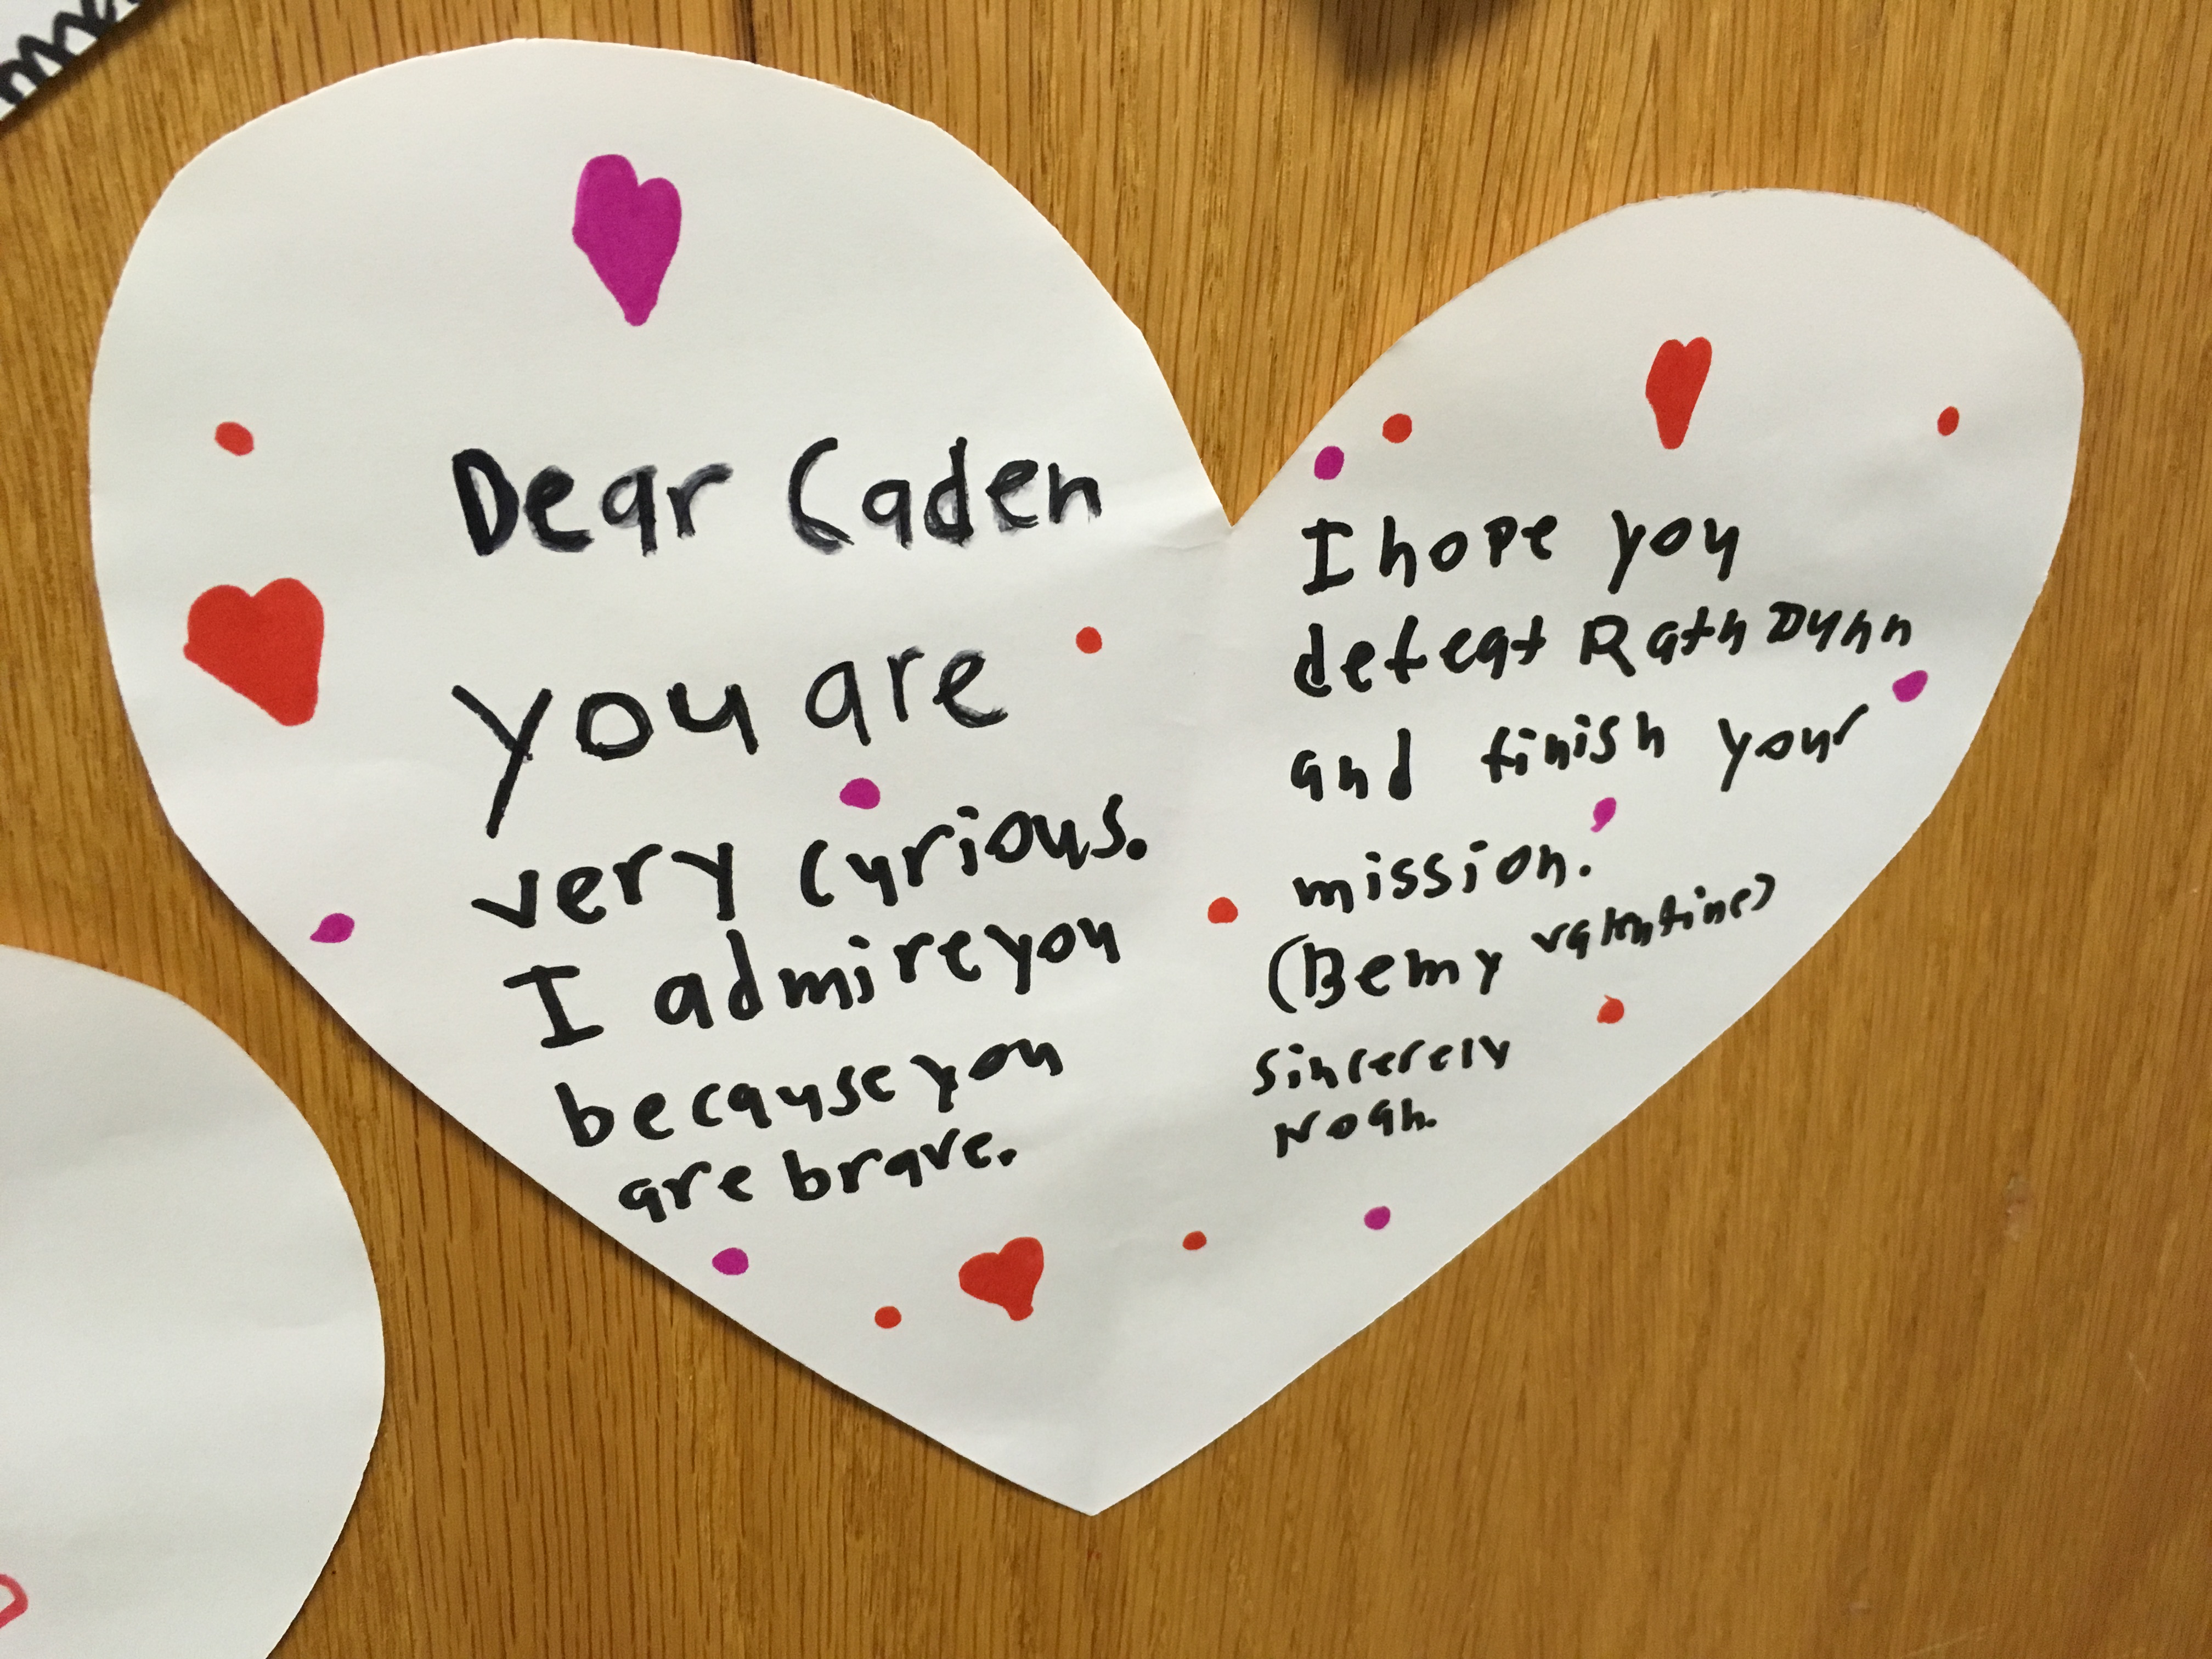 Dear Caden
you are
very curious.
I admire you
because you
are brave.
I hope you
defeat Rath Dunn
and finish your
mission.
(Be my valentine)
Sincerely
Noah.